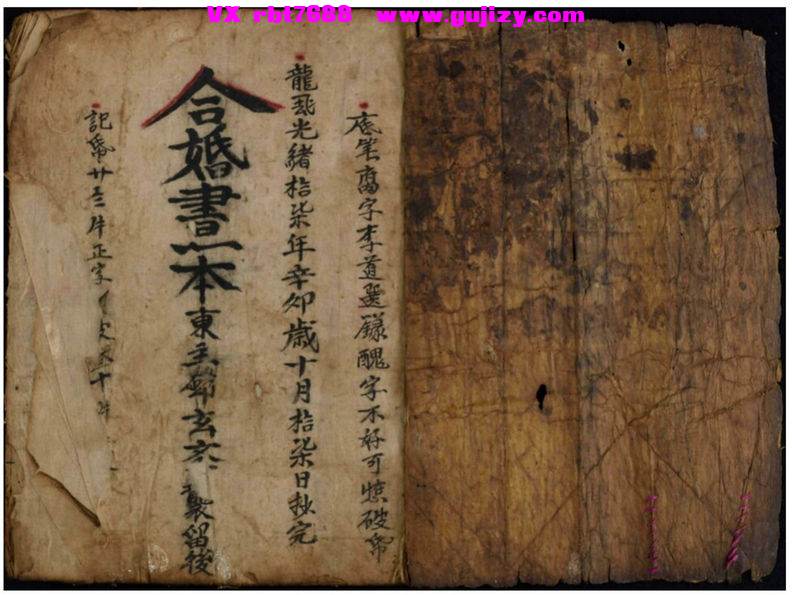 VX rbt7688 www.gujizy.com
底筆 字李道選錄醜字不好可 破
龍飛光緒拾柒年辛卯歲十月拾柒日抄完
合婚書一本東主鄧玄 製留後
記 廿三 正字